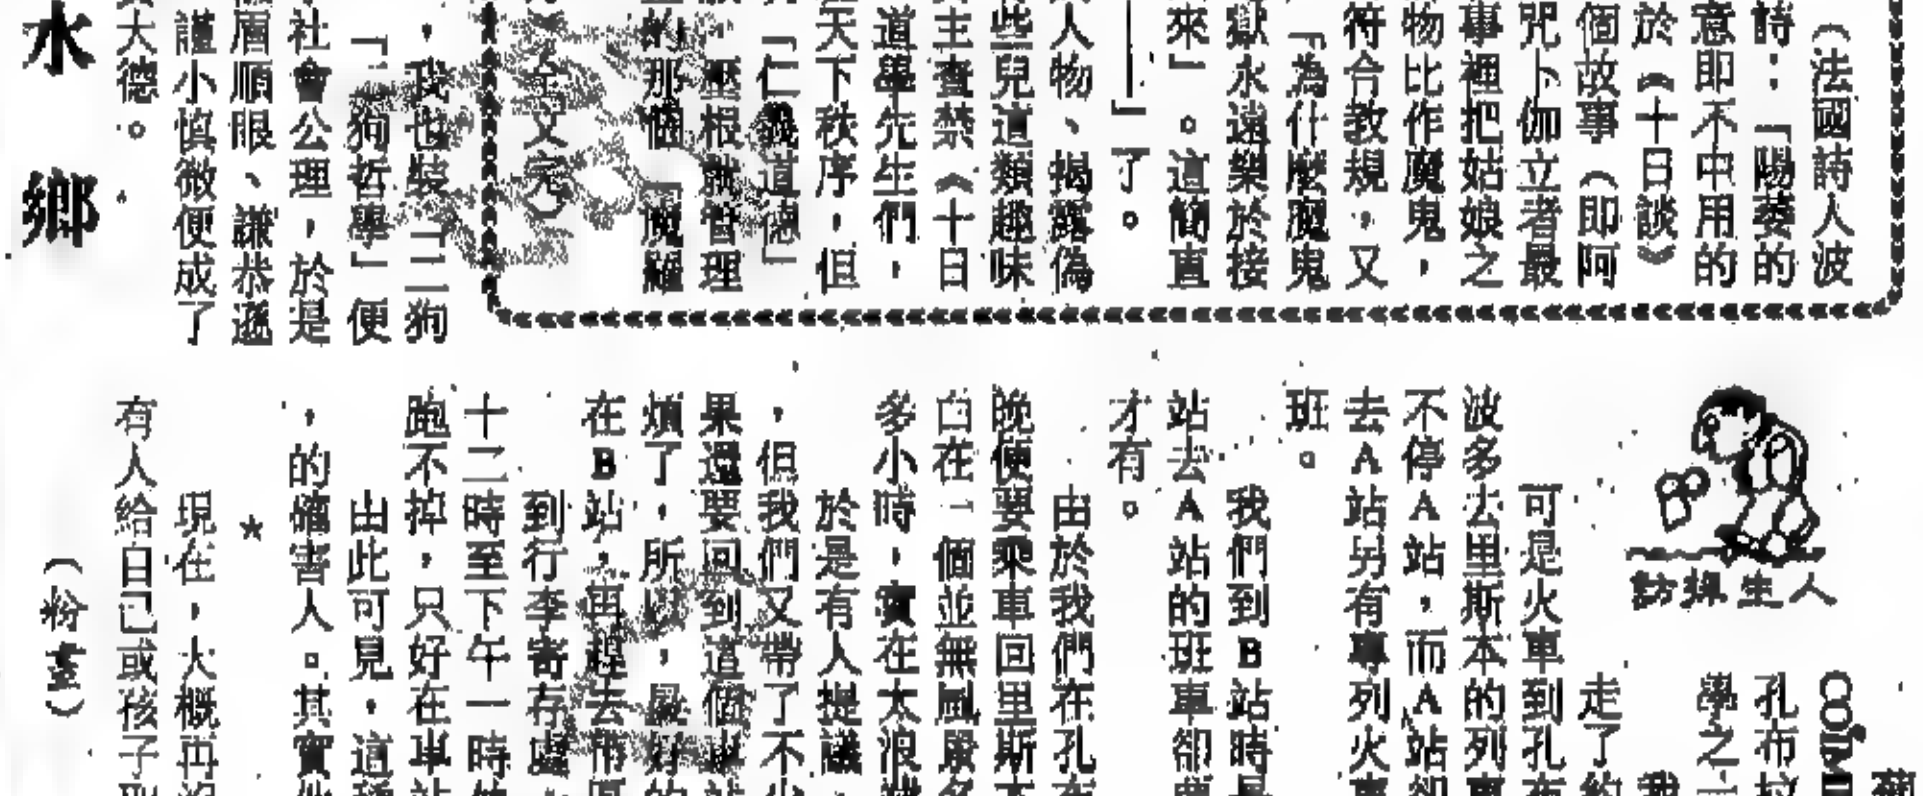 （法國詩人波
詩：「陽萎的
意即不中用的
於《十日談》
個故事（即阿
咒卜伽立者最
事裡把姑娘之
物比作魔鬼，
符合教規，又
「為什麼魔鬼
獄永遠樂於接
來」。這簡直
——」了。
人物、揭露偽
些兒道類趣味
主查禁《十日
道學先生們，
天下秩序，但
「仁義道德」
壓根就管理
的那個「魔羅
全文完）
，我也裝「二狗
「二狗哲學」便
社會公理，於是
層順眼、謙恭遜
謹小慎微便成了
大德。
水鄉
人生採訪
COIM
孔布拉
學之一
我
走了約
可是火車到孔布
波多去里斯本的列車
不停A站，而A站卻
去A站另有專列火車
班。
我們到B站時是
站去A站的班車卻要
才有。
由於我們在孔布
晚便要乘車回里斯本
白在一個並無風景名
多小時，實在太浪
於是有人提議，
，但我們又帶了不少
果還要回到這個車站
煩了，所以，最好的
在B站，再趕去
到行李寄存處
十二時至下午一時
跑不掉，只好在車站
由此可見，這種
，的確害人。其實他
★
現在，大概再沒
有人給自己或孩子取
（粉畫）